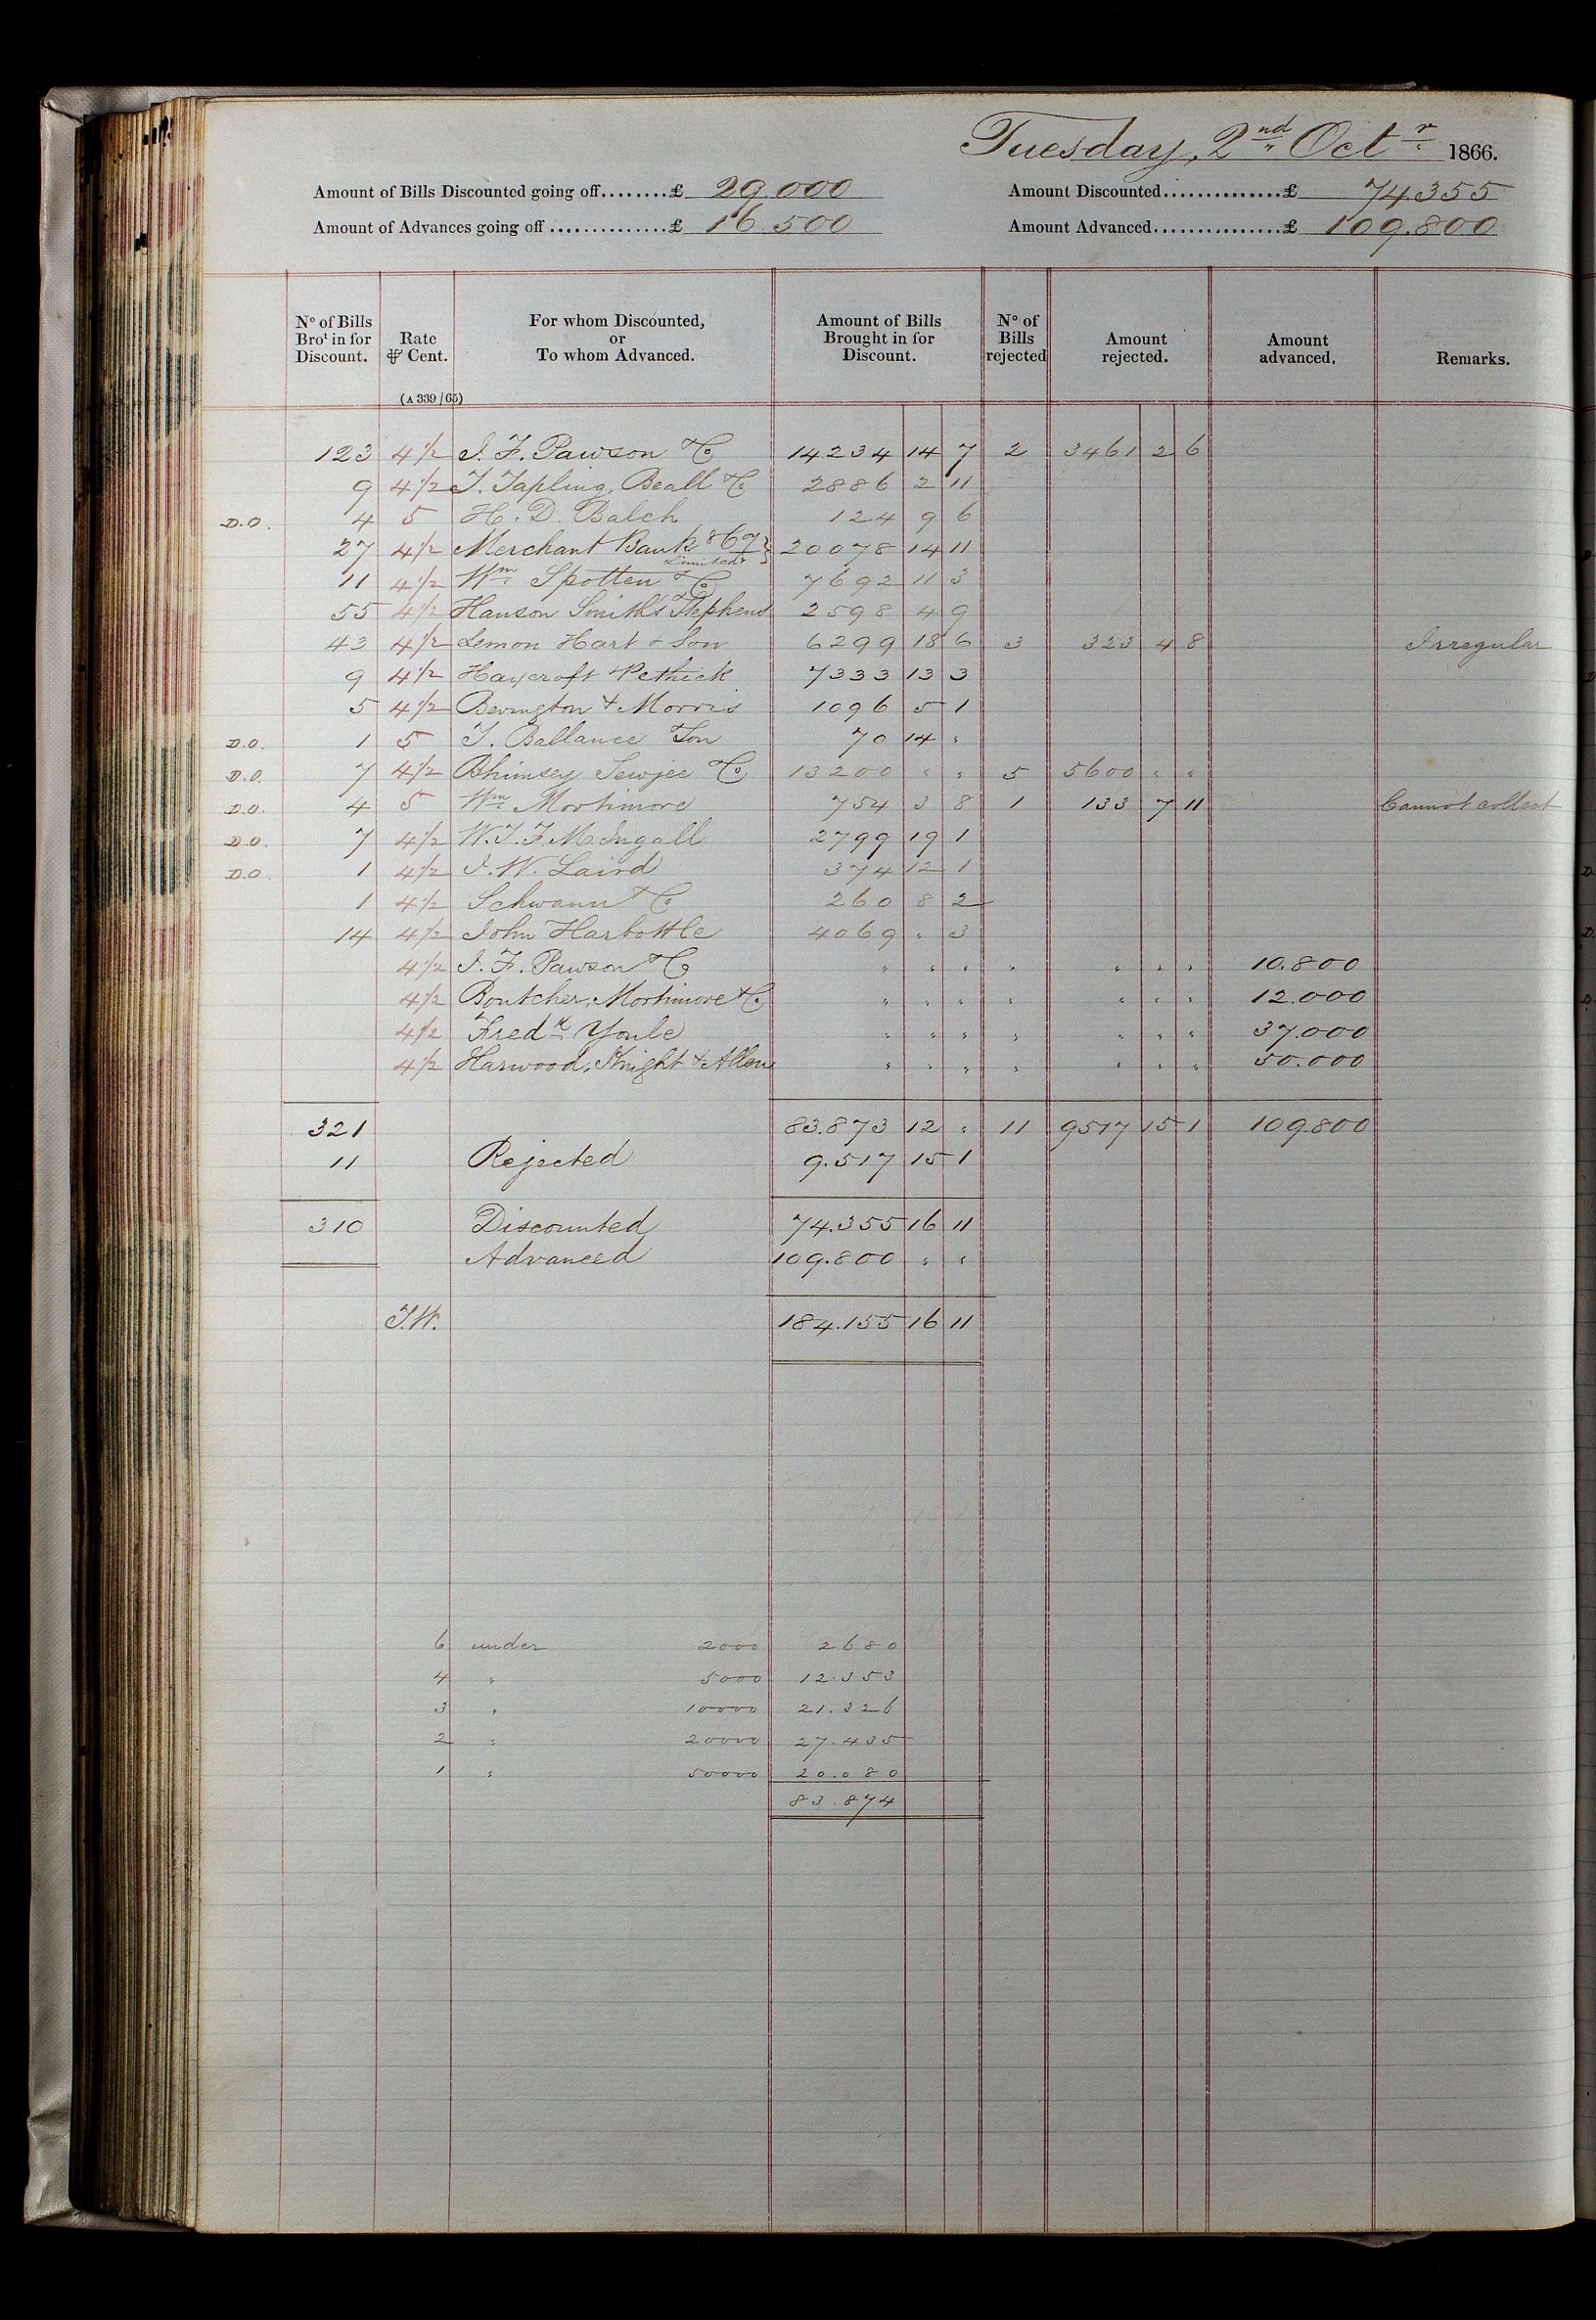 Tuesday, 2nd Octr 1866.
Amount of Bills Discounted going off........£ 29.000 Amount Discounted..............£ 74.355
Amount of Advances going off ..............£ 16.500 Amount Advanced................£ 109.800
No of Bills Brot in for Discount. Rate ⅌ Cent. (A 339/65) For whom Discounted, or To whom Advanced. Amount of Bills Brought in for Discount. No of Bills rejected Amount rejected. Amount advanced. Remarks.
123 4½ J. F. Pawson & Co 14234 14 7 2 3461 2 6
9 4½ T. Tapling, Beall & Co 2886 2 11
D.O. 4 5 H. D. Balch 124 9 6
27 4½ Merchant Bank Limited 20078 14 11
11 4½ Wm Spotten & Co 7692 11 3
55 4½ Hanson Smith & Stephens 2598 4 9
43 4½ Lemon Hart & Son 6299 18 6 3 323 4 8 Irregular
9 4½ Haycroft & Pethick 7333 13 3
5 4½ Bevington & Morris 1096 5 1
D.O. 1 5 T. Ballance & Son 70 14 "
D.O. 7 4½ Bhimsey Sewjee & Co 13200 " " 5 5600 " "
D.O. 4 5 Wm Mortimore 754 3 8 1 133 7 11 Cannot collect
D.O. 7 4½ W. T. F. M. Ingall 2799 19 1
D.O. 1 4½ J. W. Laird 374 12 1
1 4½ Schwann & Co 260 8 2
14 4½ John Harbottle 4069 " 3
4½ J. F. Pawson & Co " " " " " " " 10.800
4½ Boutcher, Mortimore & Co " " " " " " " 12.000
4½ Fredk Youle " " " " " " " 37.000
4½ Harwood, Knight & Allen " " " " " " " 50.000
321 83.873 12 " 11 9517 15 1 109.800
11 Rejected 9.517 15 1
310 Discounted 74.355 16 11
Advanced 109.800 " "
T.W. 184.155 16 11
6 under 2000 2680
4 " 5000 12.353
3 " 10000 21.326
2 " 20000 27.435
1 " 50000 20.080
83.874